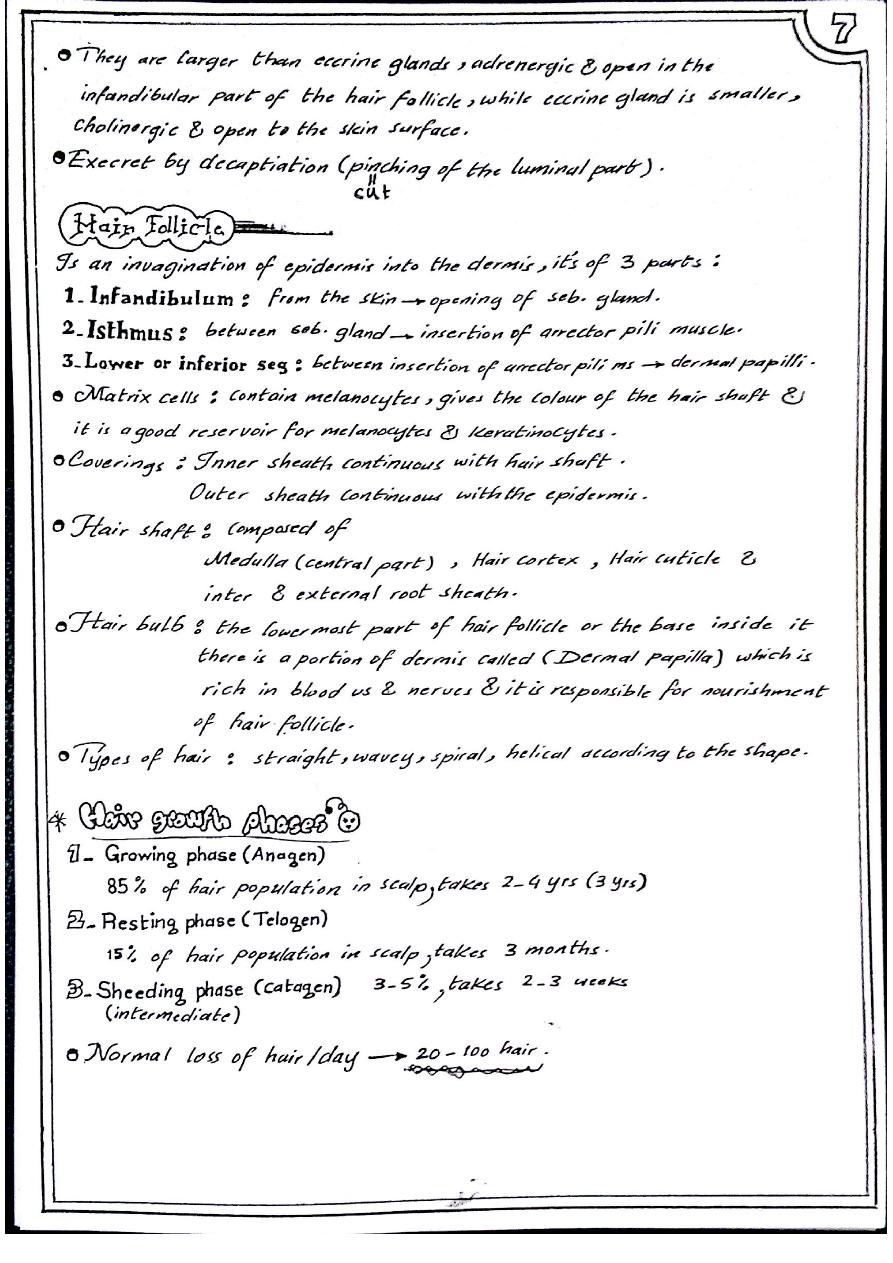 7
• They are larger than eccrine glands, adrenergic & open in the
infandibular part of the hair follicle, while eccrine gland is smaller,
cholinergic & open to the skin surface.
• Execret by decaptiation (pinching of the luminal part).
cut
Hair Follicle
Is an invagination of epidermis into the dermis, it's of 3 parts :
1- Infandibulum : from the skin → opening of seb. gland.
2- Isthmus : between seb. gland → insertion of arrector pili muscle.
3- Lower or inferior seg : between insertion of arrector pili ms → dermal papilli.
• Matrix cells : contain melanocytes, gives the colour of the hair shaft &
it is a good reservoir for melanocytes & keratinocytes.
• Coverings : Inner sheath continuous with hair shaft.
Outer sheath continuous with the epidermis.
• Hair shaft : composed of
Medulla (central part) , Hair cortex , Hair cuticle &
inter & external root sheath.
• Hair bulb : the lowermost part of hair follicle or the base inside it
there is a portion of dermis called (Dermal papilla) which is
rich in blood vs & nerves & it is responsible for nourishment
of hair follicle.
• Types of hair : straight, wavey, spiral, helical according to the shape.
* Hair growth phases
1- Growing phase (Anagen)
85% of hair population in scalp, takes 2-4 yrs (3 yrs)
2- Resting phase (Telogen)
15% of hair population in scalp, takes 3 months.
3- Sheeding phase (catagen) 3-5%, takes 2-3 weeks
(intermediate)
• Normal loss of hair/day → 20-100 hair.